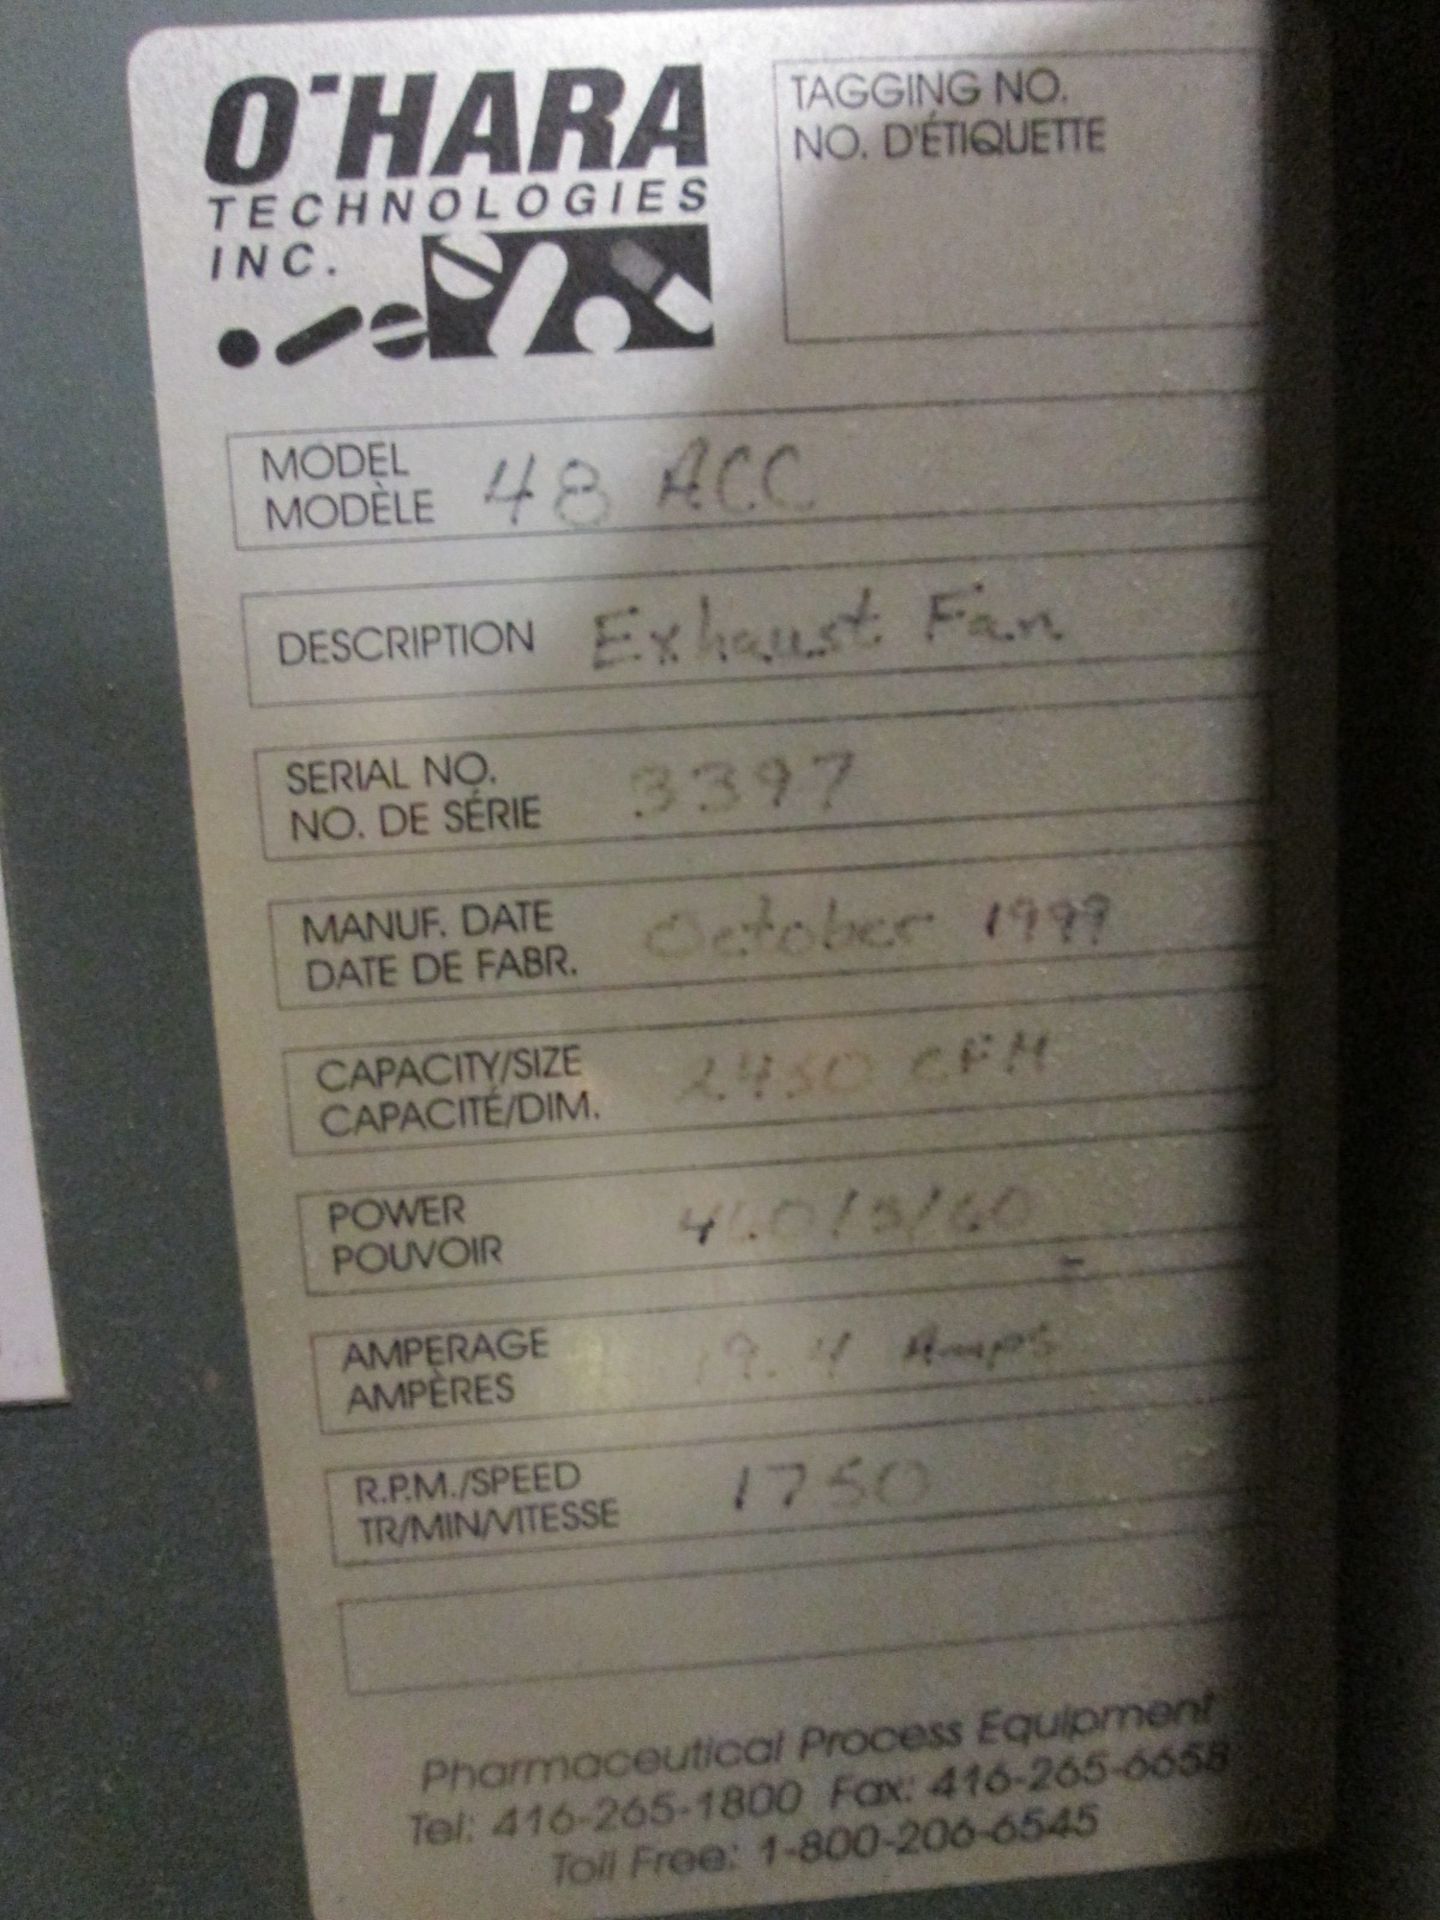 O'HARA
TECHNOLOGIES
INC.
TAGGING NO.
NO. D'ÉTIQUETTE
MODEL
MODÈLE
48 ACC
DESCRIPTION Exhaust Fan
SERIAL NO.
NO. DE SÉRIE
3397
MANUF. DATE
DATE DE FABR.
October 1999
CAPACITY/SIZE
CAPACITÉ/DIM.
2450 CFM
POWER
POUVOIR
AMPERAGE
AMPÈRES
Amps
R.P.M./SPEED
TR/MIN/VITESSE
1750
Pharmaceutical Process Equipment
Tel: 416-265-1800 Fax: 416-265-6658
Toll Free: 1-800-206-6545